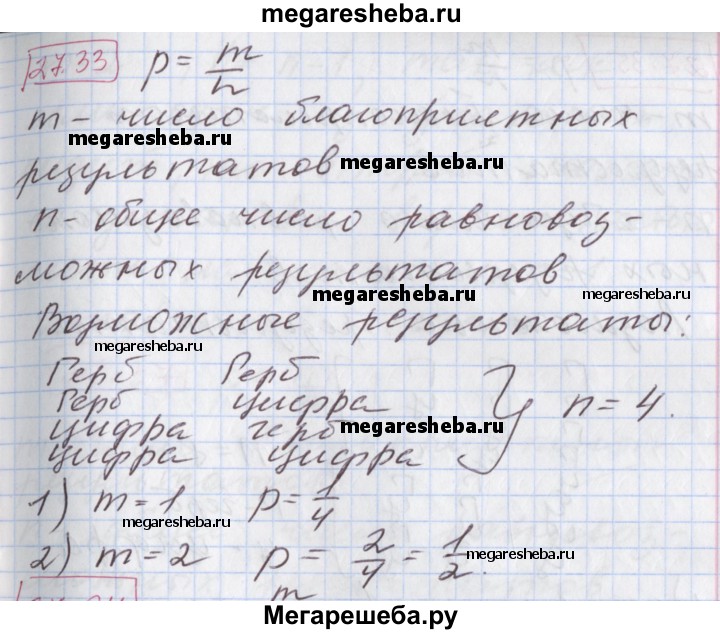 megaresheba.ru
27.33 p = m/n
m - число благоприятных
megaresheba.ru
результатов
megaresheba.ru
n - общее число равновоз-
можных результатов
megaresheba.ru
megaresheba.ru
Возможные результаты:
megaresheba.ru
Герб Герб
Герб цифра
цифра герб
megaresheba.ru
цифра цифра
} n = 4.
1) m = 1 p = 1/4
megaresheba.ru
2) m = 2 p = 2/4 = 1/2.
megaresheba.ru
m
Мегарешеба.ру